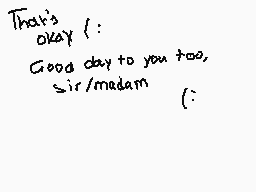 That's
okay (:
Good day to you too,
sir/madam
(: